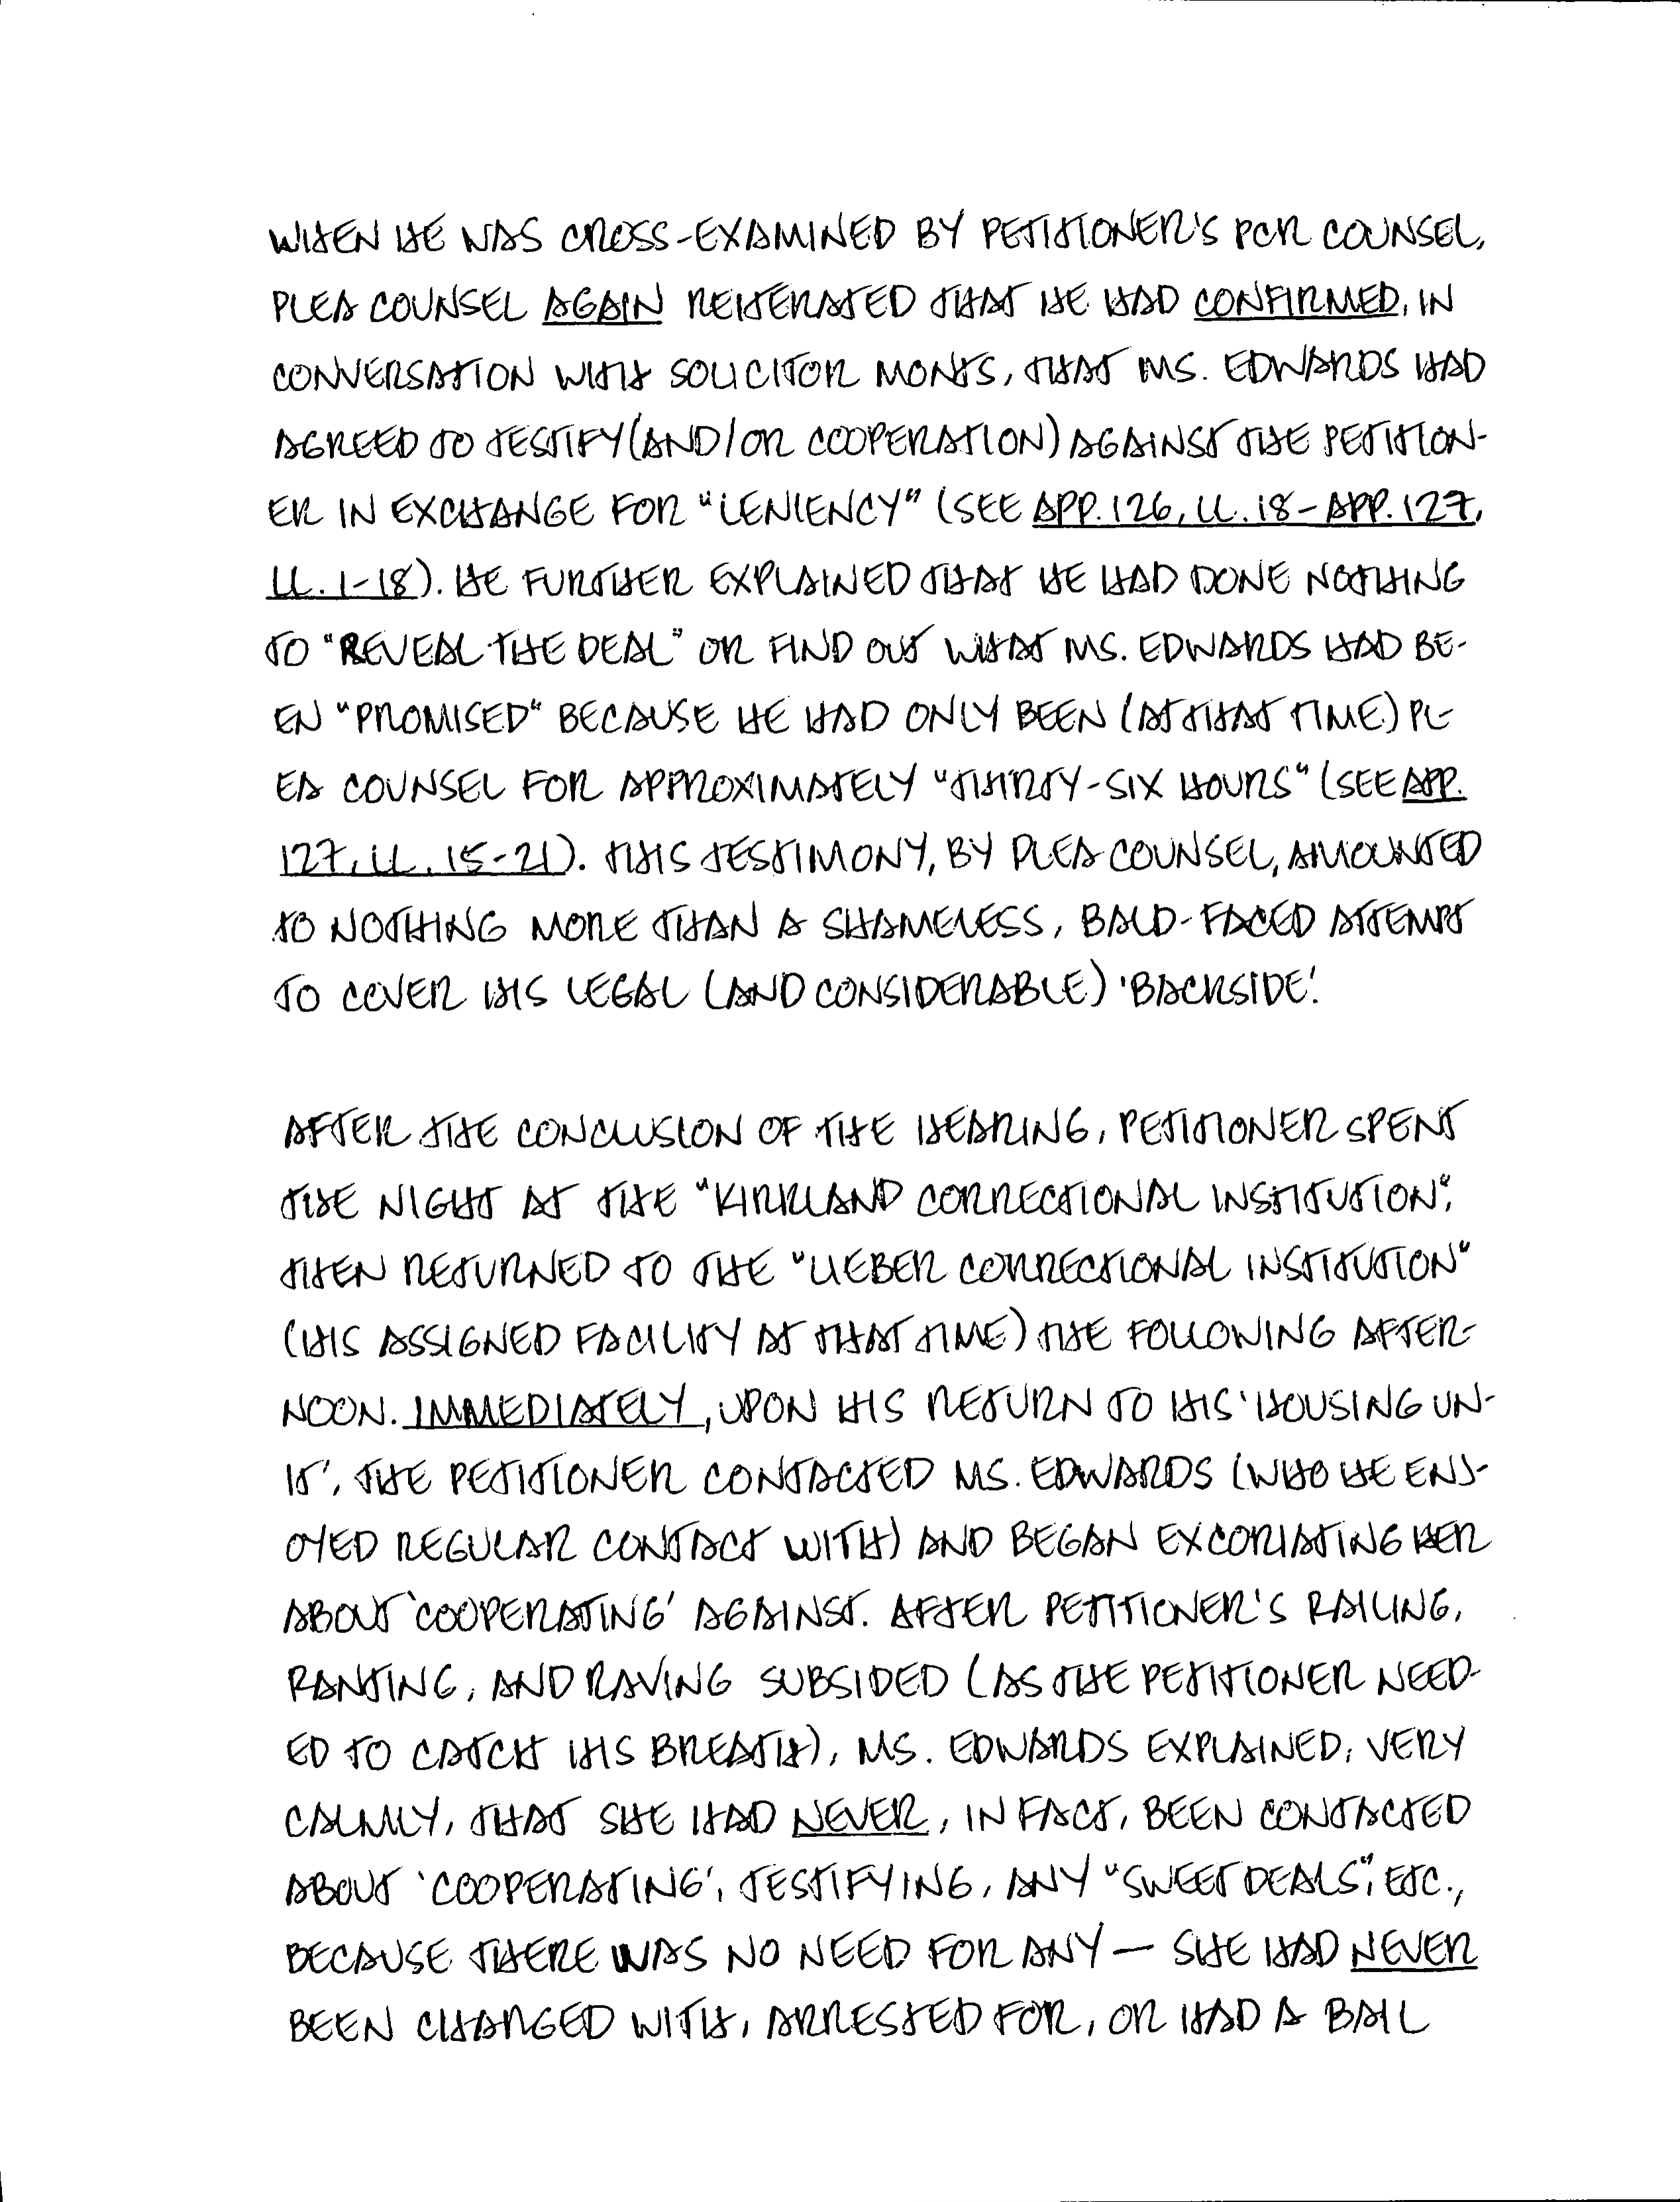 WHEN HE WAS CROSS-EXAMINED BY PETITIONER'S PCR COUNSEL,
PLEA COUNSEL AGAIN REITERATED THAT HE HAD CONFIRMED, IN
CONVERSATION WITH SOLICITOR MONTS, THAT MS. EDWARDS HAD
AGREED TO TESTIFY (AND/OR COOPERATION) AGAINST THE PETITION-
ER IN EXCHANGE FOR "LENIENCY" (SEE APP. 126, LL. 18 - APP. 127,
LL. 1-18). HE FURTHER EXPLAINED THAT HE HAD DONE NOTHING
TO "REVEAL THE DEAL" OR FIND OUT WHAT MS. EDWARDS HAD BE-
EN "PROMISED" BECAUSE HE HAD ONLY BEEN (AT THAT TIME) PL-
EA COUNSEL FOR APPROXIMATELY "THIRTY-SIX HOURS" (SEE APP.
127, LL. 15-21). THIS TESTIMONY, BY PLEA COUNSEL, AMOUNTED
TO NOTHING MORE THAN A SHAMELESS, BALD-FACED ATTEMPT
TO COVER HIS LEGAL (AND CONSIDERABLE) 'BACKSIDE'.
AFTER THE CONCLUSION OF THE HEARING, PETITIONER SPENT
THE NIGHT AT THE "KIRKLAND CORRECTIONAL INSTITUTION",
THEN RETURNED TO THE "LIEBER CORRECTIONAL INSTITUTION"
(HIS ASSIGNED FACILITY AT THAT TIME) THE FOLLOWING AFTER-
NOON. IMMEDIATELY, UPON HIS RETURN TO HIS 'HOUSING UN-
IT', THE PETITIONER CONTACTED MS. EDWARDS (WHO HE ENJ-
OYED REGULAR CONTACT WITH) AND BEGAN EXCORIATING HER
ABOUT 'COOPERATING' AGAINST. AFTER PETITIONER'S RAILING,
RANTING, AND RAVING SUBSIDED (AS THE PETITIONER NEED-
ED TO CATCH HIS BREATH), MS. EDWARDS EXPLAINED, VERY
CALMLY, THAT SHE HAD NEVER, IN FACT, BEEN CONTACTED
ABOUT 'COOPERATING', TESTIFYING, ANY "SWEET DEALS", ETC.,
BECAUSE THERE WAS NO NEED FOR ANY — SHE HAD NEVER
BEEN CHARGED WITH, ARRESTED FOR, OR HAD A BAIL